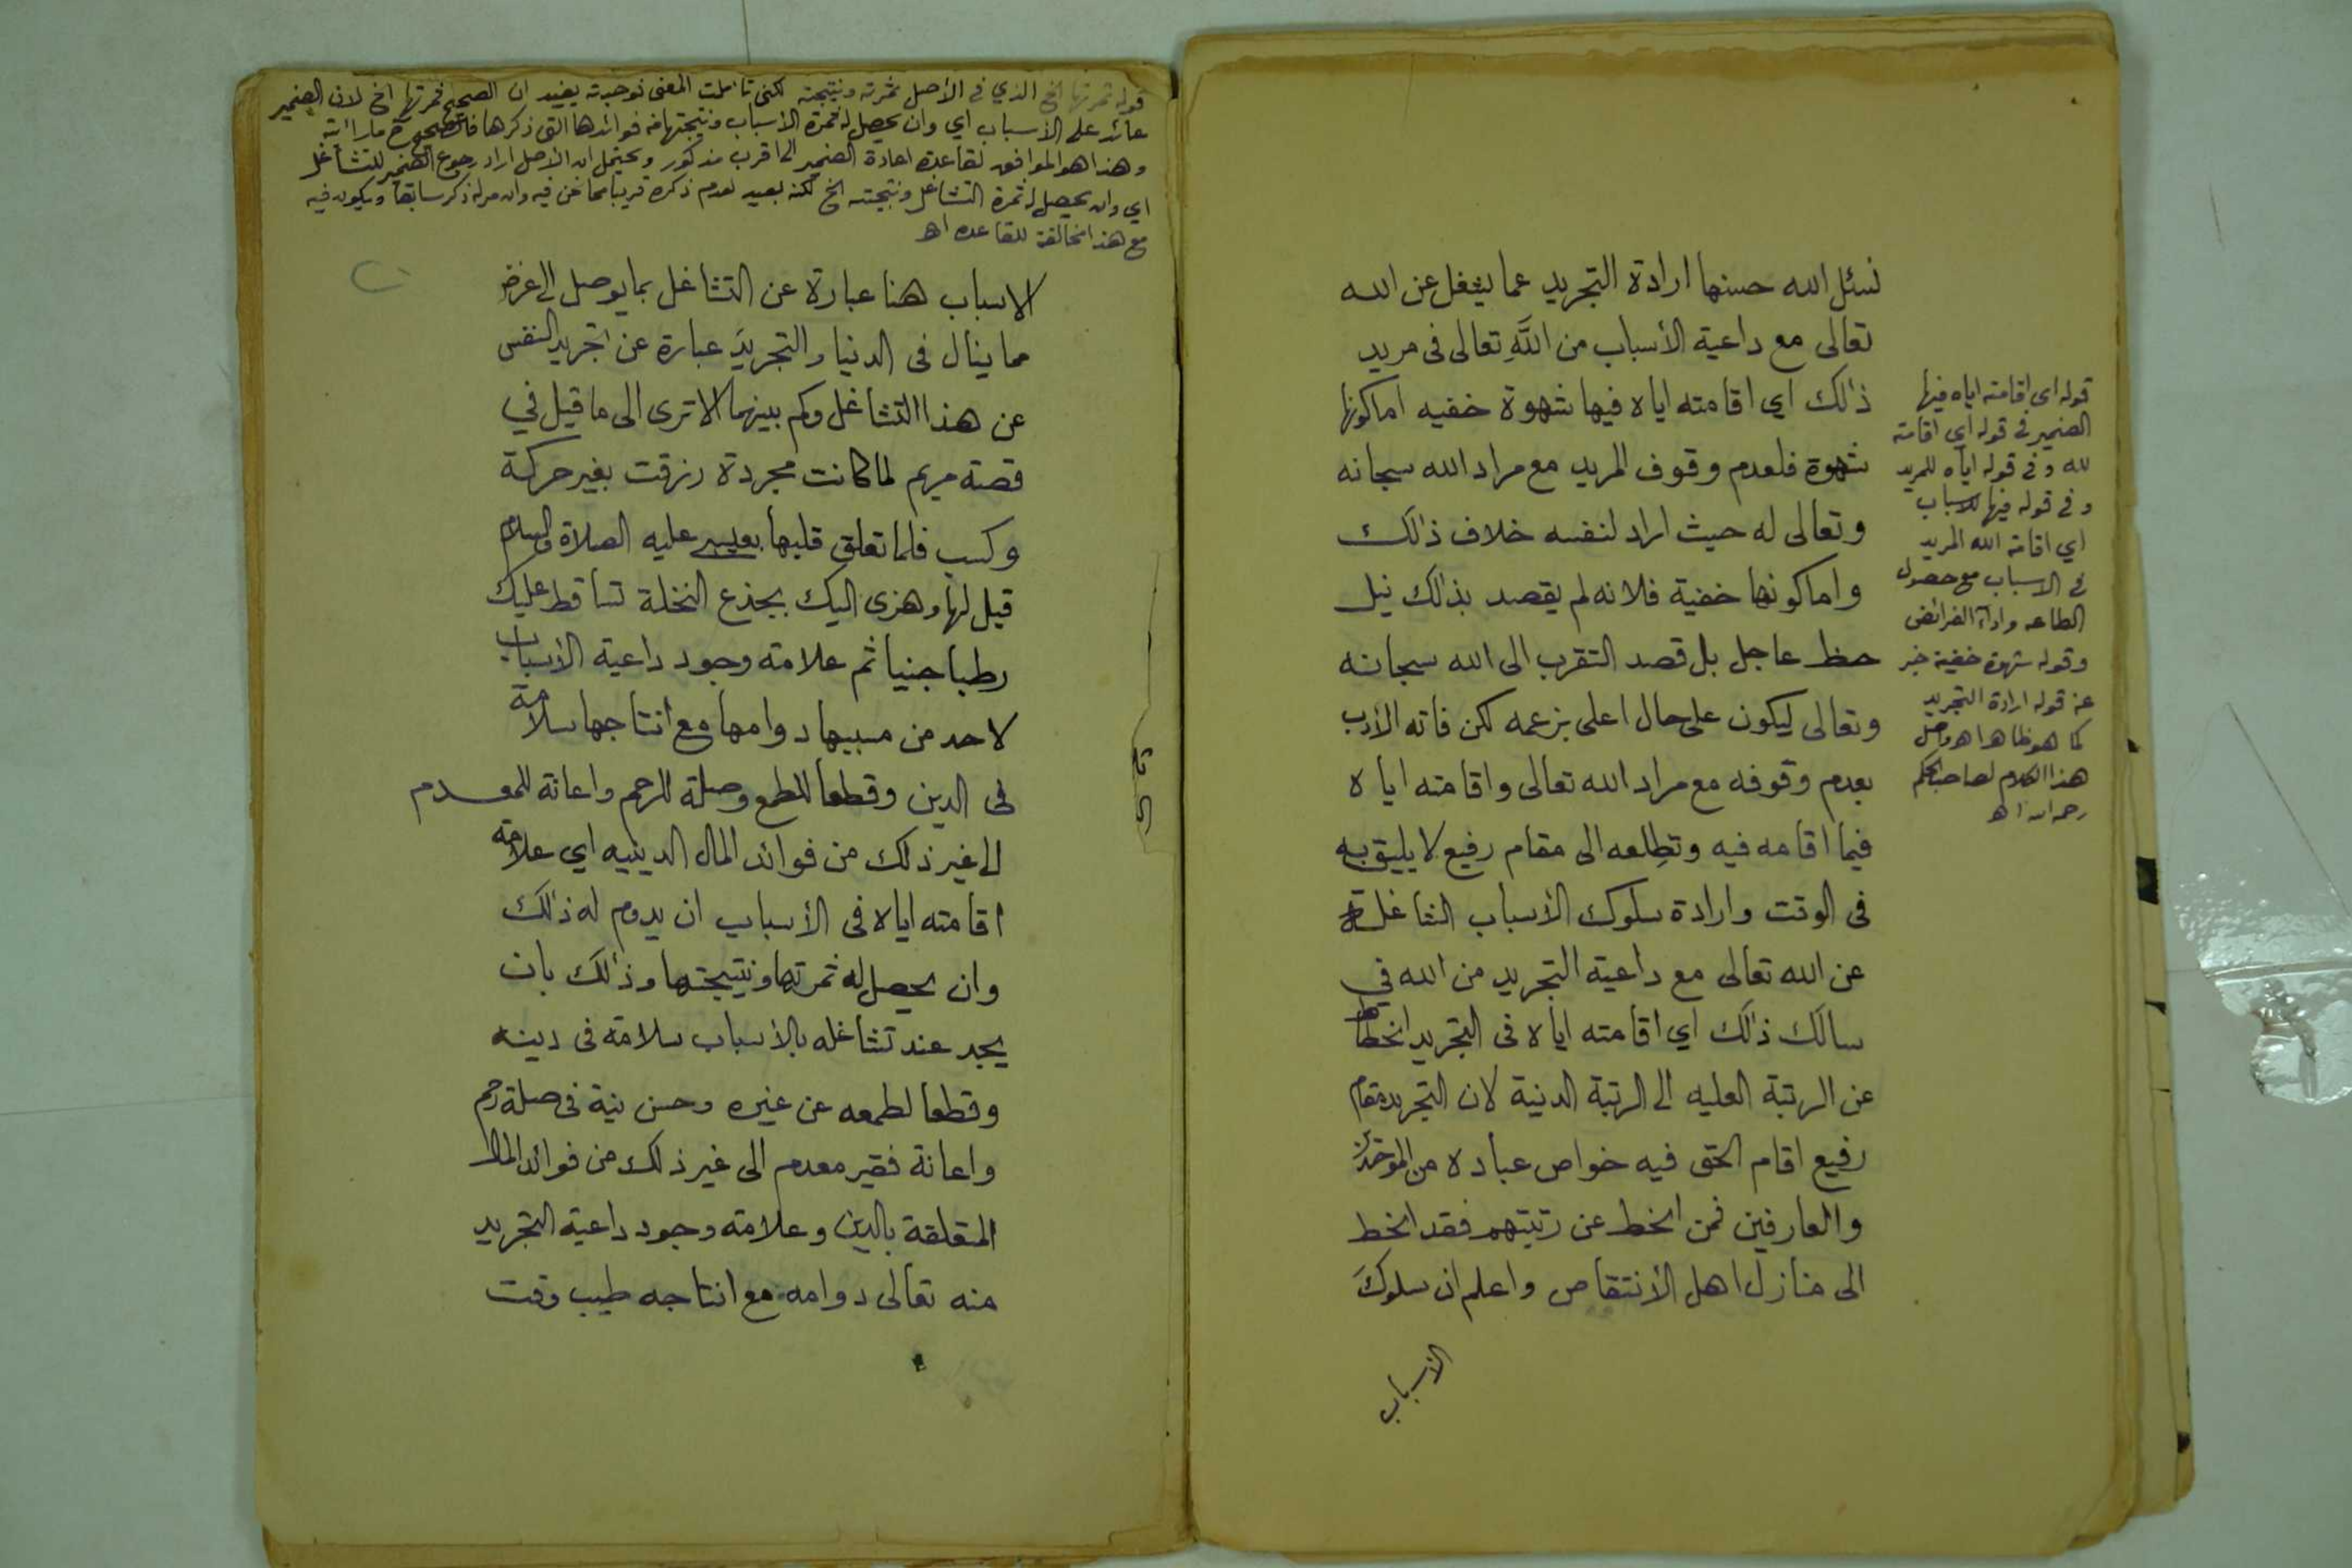 نسئل الله حسنها ارادة التجريد عما يشغل عن الله
تعالى مع داعية الأسباب من اللَّهِ تعالى فى مريد
ذالك اي اقامته اياه فيها شهوة خفيه اما كونها
شهوة فلعدم وقوف المريد مع مراد الله سبحانه
وتعالى له حيث اراد لنفسه خلاف ذالك
واما كونها خفية فلانه لم يقصد بذالك نيل
حظ عاجل بل قصد التقرب الى الله سبحانه
وتعالى ليكون على حال اعلى بزعمه لكن فاته الأدب
بعدم وقوفه مع مراد الله تعالى واقامته اياه
فيما اقامه فيه وتطلعه الى مقام رفيع لا يليق به
فى الوقت وارادة سلوك الأسباب الشاغلة
عن الله تعالى مع داعية التجريد من الله في
سالك ذالك اي اقامته اياه فى التجريد انحطاط
عن الرتبة العليه الى الرتبة الدنية لان التجريد مقام
رفيع اقام الحق فيه خواص عباده من الموحدين
والعارفين فمن انحط عن رتبتهم فقد انحط
الى منازل اهل الأنتقاص واعلم ان سلوكَ
الأسباب
قوله اي اقامته اياه فيها
الضمير فى قوله اي اقامته
لله وفى قوله اياه للمريد
وفى قوله فيها للاسباب
اي اقامة الله المريد
فى الاسباب مع حصول
الطاعه واداء الفرائض
وقوله شهوة خفية خبر
عن قوله ارادة التجريد
كما هو ظاهر اهـ واصل
هذا الكلام لصاحب الحكم
رحمه الله اهـ
قوله ثمرتها الخ الذي في الأصل ثمرته ونتيجته لكنى تأملت المعنى فوجدته يفيد ان الصحيح ثمرتها الخ لان الضمير
عائد على الأسباب اي وان يحصل له ثمرة الأسباب ونتيجتها من فوائدها التى ذكرها فالصحيح ما رأيته
وهذا هو الموافق لقاعدة اعادة الضمير الى اقرب مذكور ويحتمل ان الأصل اراد رجوع الضمير للتشاغل
اي وان يحصل له ثمرة التشاغل ونتيجته الخ لكنه بعيد لعدم ذكره قريبا مما نحن فيه وان مر له ذكر سابقا ويكون فيه
مع هذا مخالفة للقاعده اهـ
الاسباب هنا عبارة عن التشاغل بما يوصل الى غرض
مما ينال فى الدنيا والتجريدَ عبارة عن تجريد النفس
عن هذا التشاغل وكم بينهما الا ترى الى ما قيل في
قصة مريم لما كانت مجردة رزقت بغير حركة
وكسب فلما تعلق قلبها بعيسى عليه الصلاة والسلام
قيل لها وهزى اليك بجذع النخلة تساقط عليك
رطبا جنيا ثم علامة وجود داعية الأسباب
لاحد من مسببها دوامها مع انتاجها سلامة
فى الدين وقطعا للطمع وصلة للرحم واعانة للمعدم
الى غير ذلك من فوائد المال الدينيه اي علامة
اقامته اياه فى الأسباب ان يدوم له ذالك
وان يحصل له ثمرتها ونتيجتها وذالك بان
يجد عند تشاغله بالأسباب سلامة فى دينه
وقطعا لطمعه عن غيره وحسن نية فى صلة رحم
واعانة فقير معدم الى غير ذلك من فوائد المال
المتعلقة بالدين وعلامة وجود داعية التجريد
منه تعالى دوامه مع انتاجه طيب وقت